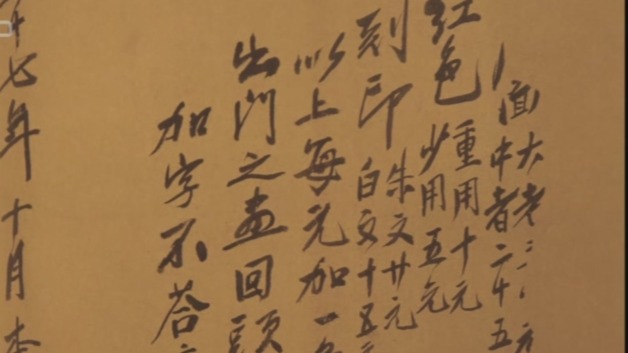 面
大者
中者二十五
红色
重用十元
少用五元
刻印
朱文廿元
白文十五元
以上每元加一
出門之畫回頭
加字不答
十七年十月本